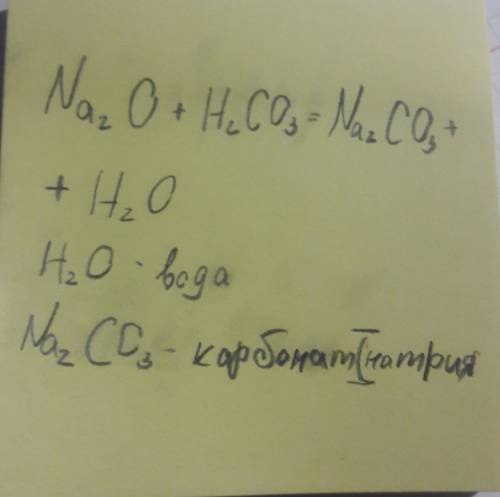 Na₂O + H₂CO₃ = Na₂CO₃ +
+ H₂O
H₂O - вода
Na₂CO₃ - карбонат натрия